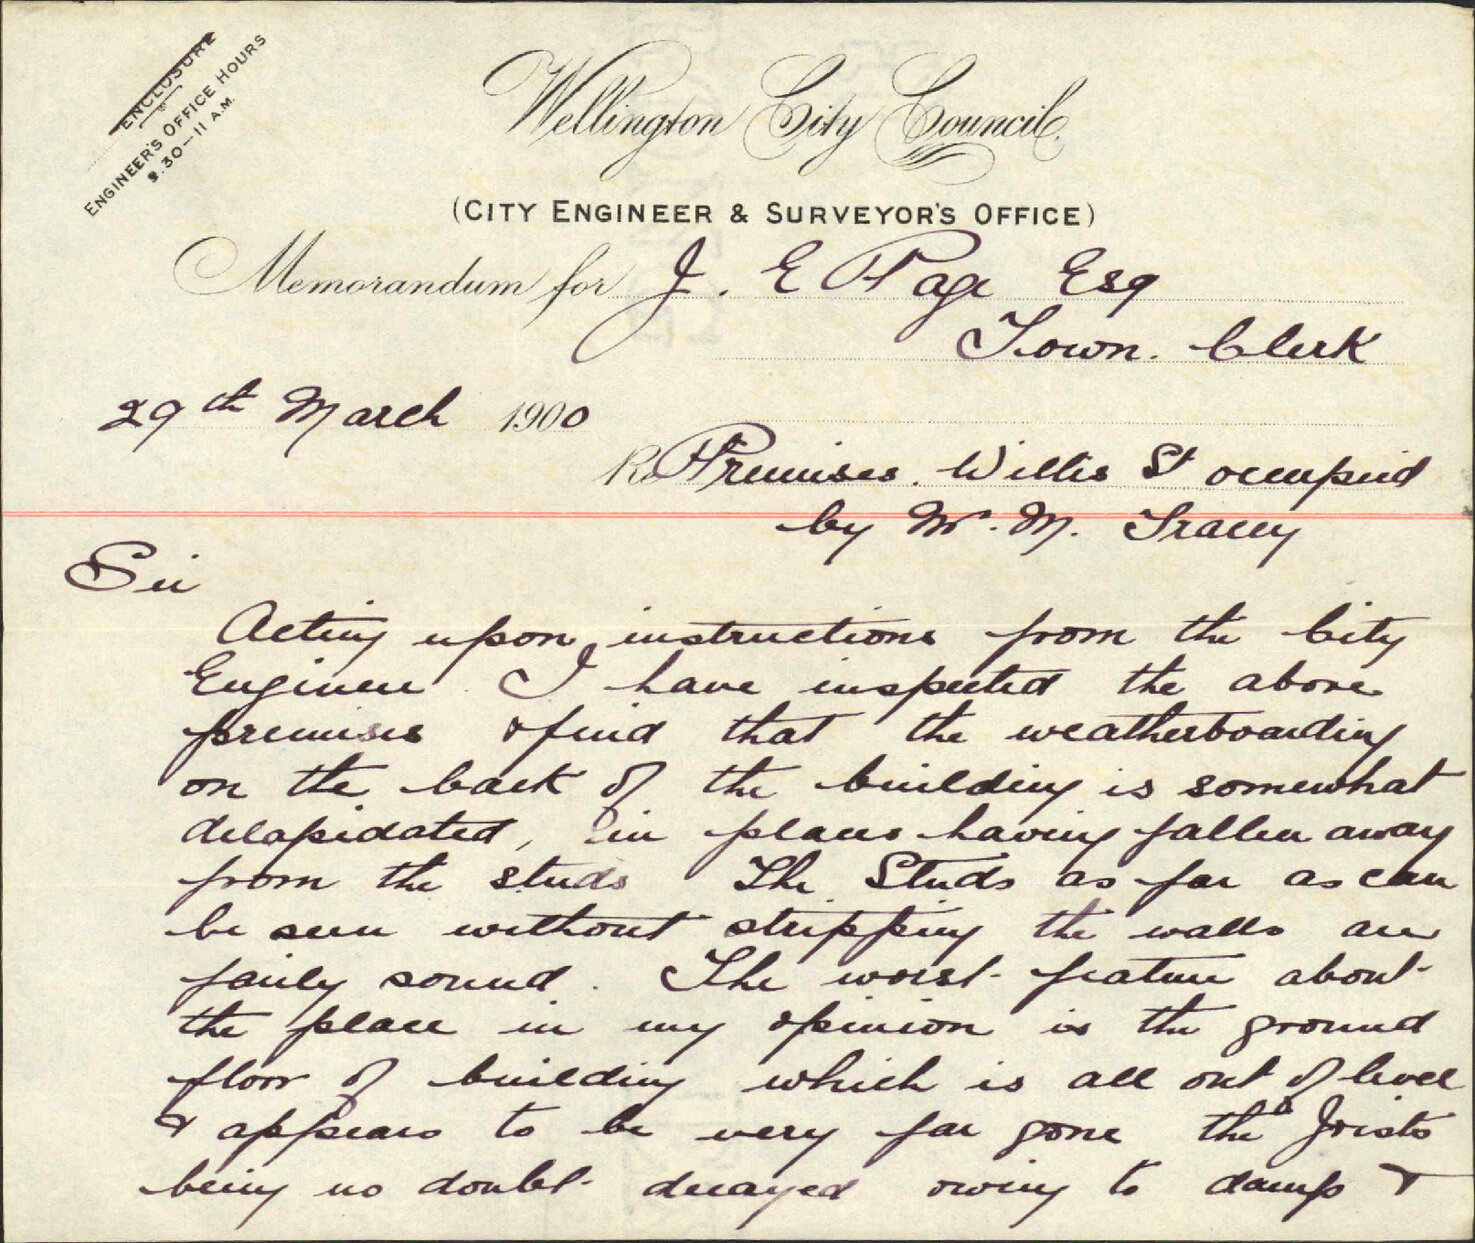 ENCLOSURE
ENGINEER'S OFFICE HOURS
9.30—11 A.M.
Wellington City Council.
(CITY ENGINEER & SURVEYOR'S OFFICE)
Memorandum for J. E Page Esq
Town. Clerk
29th March 1900
Re Premises. Willis St occupied
by W. M. Tracey
Sir
Acting upon instructions from the City
Engineer I have inspected the above
premises & find that the weatherboarding
on the back of the building is somewhat
delapidated, in places having fallen away
from the studs The Studs as far as can
be seen without stripping the walls are
fairly sound. The worst feature about
the place in my opinion is the ground
floor of building which is all out of level
& appears to be very far gone the Joists
being no doubt decayed owing to damp &